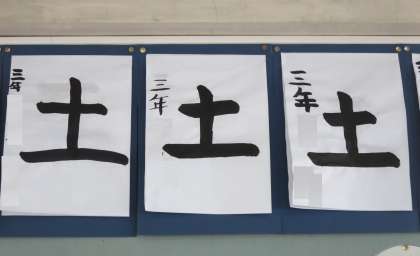 三年
土
三年
土
三年
土